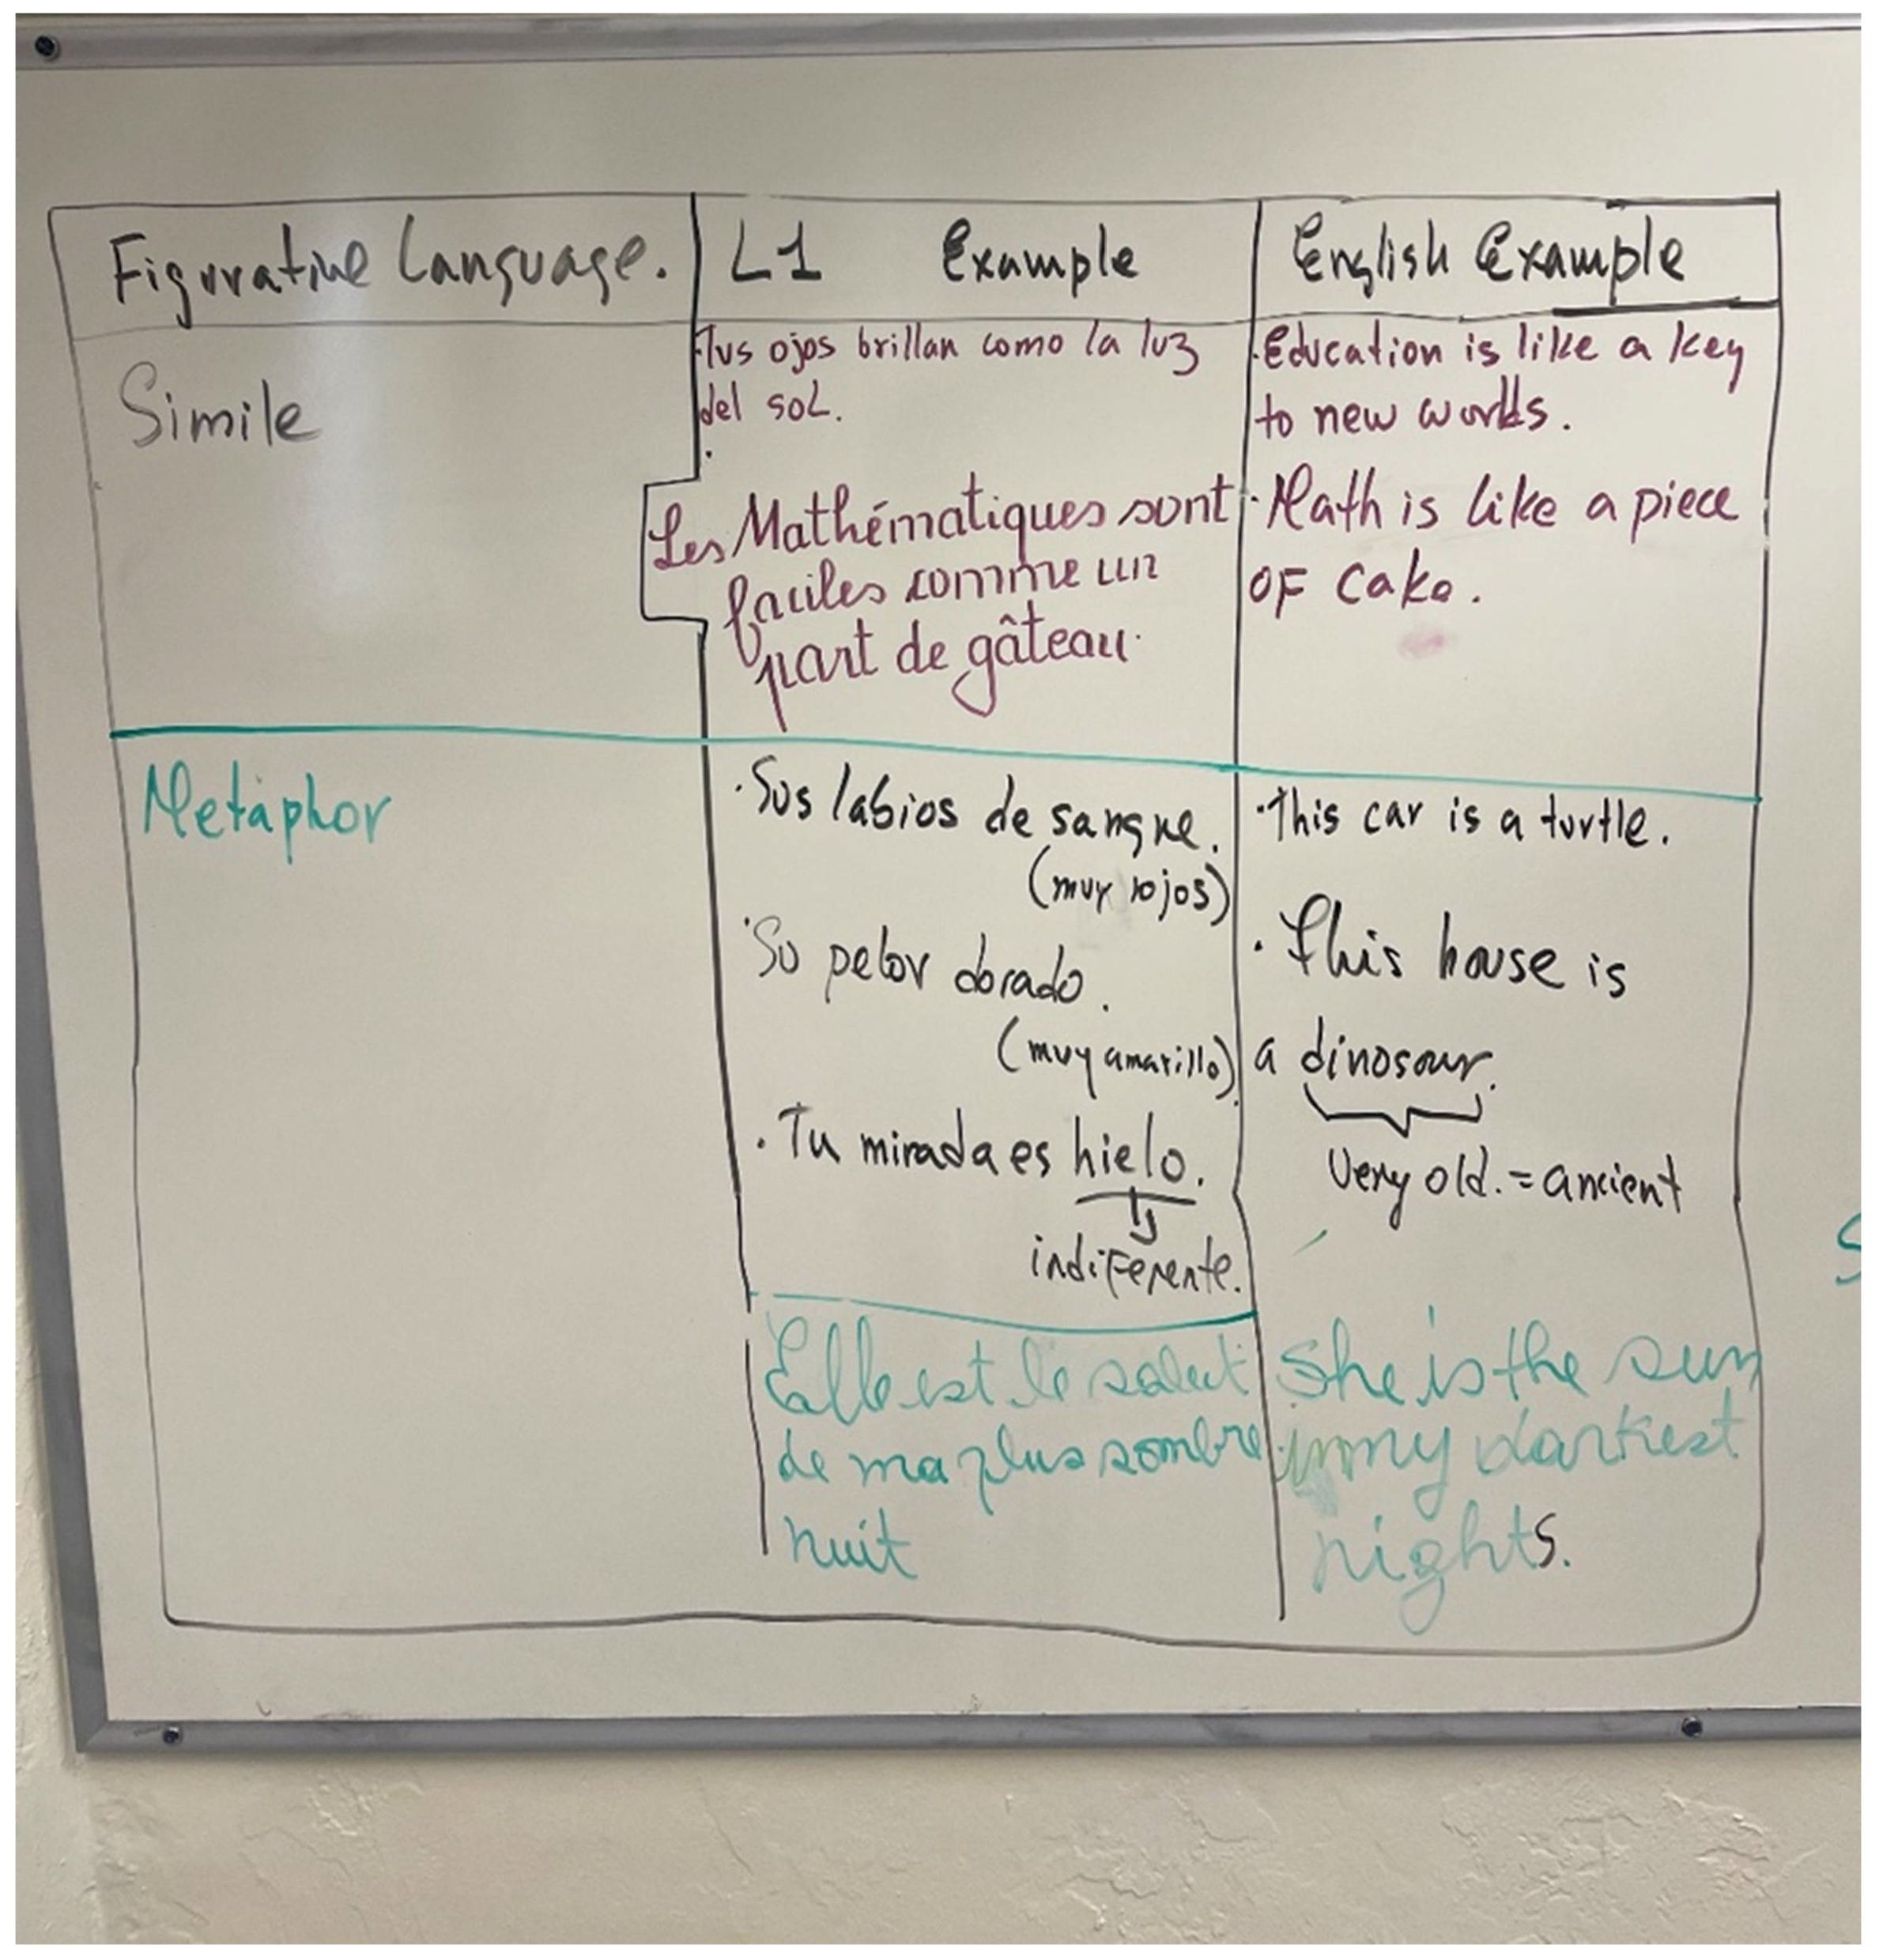 Figurative Language.
L1 Example
English Example
Simile
Tus ojos brillan como la luz
del sol.
Les Mathématiques sont
faciles comme un
part de gâteau.
Education is like a key
to new worlds.
Math is like a piece
of cake.
Metaphor
Sus labios de sangre.
(muy rojos)
Su pelor dorado.
(muy amarillo)
Tu mirada es hielo.
indiferente.
Elle est le
de ma plus sombre
nuit
This car is a turtle.
This house is
a dinosaur.
Very old. = ancient
She is the sun
in my darkest
nights.
S